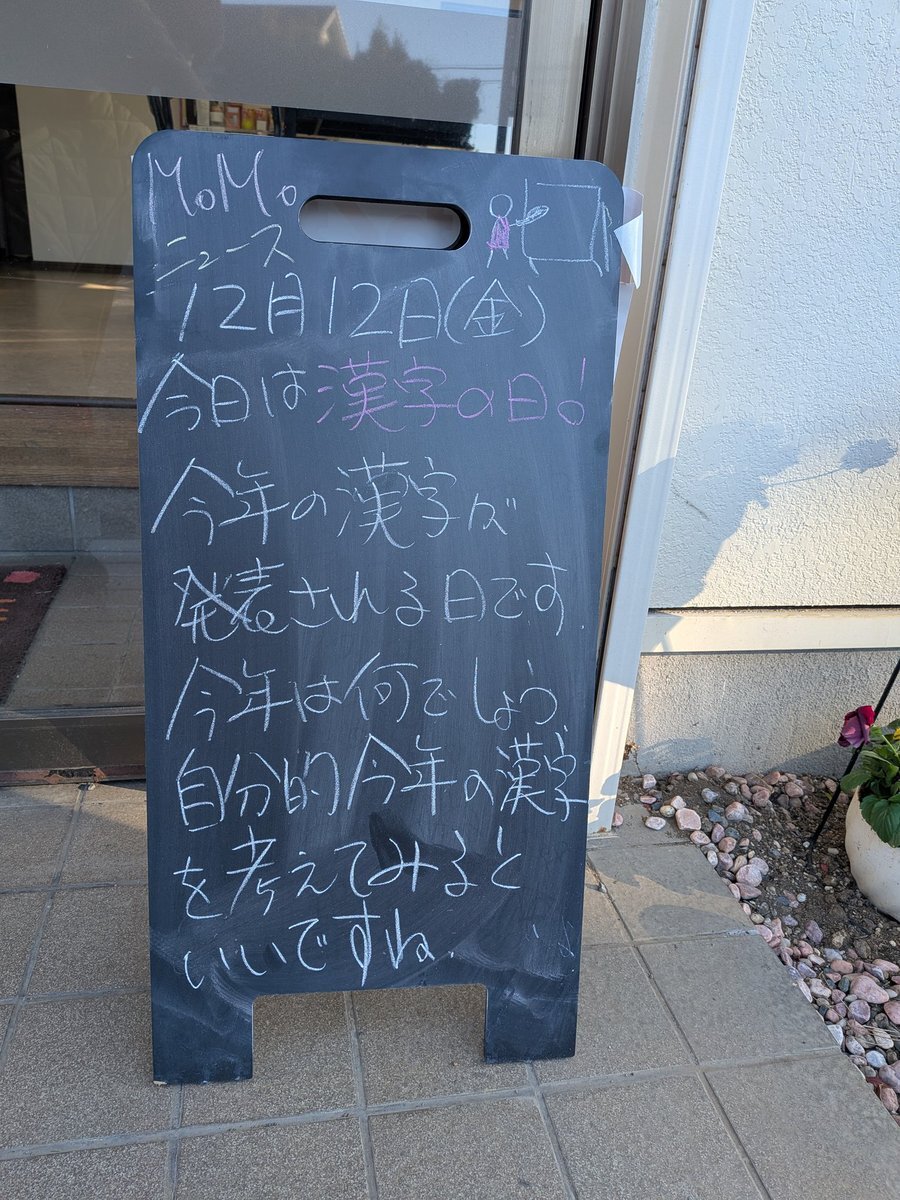 MoMo
ニュース
12月12日(金)
今日は漢字の日!
今年の漢字が
発表される日です
今年は何でしょう
自分的今年の漢字
を考えてみると
いいですね.